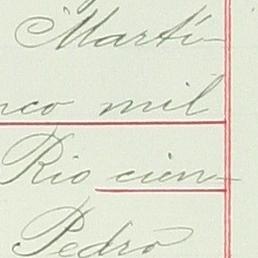 Martí-
nco mil
Rio cien-
Pedro